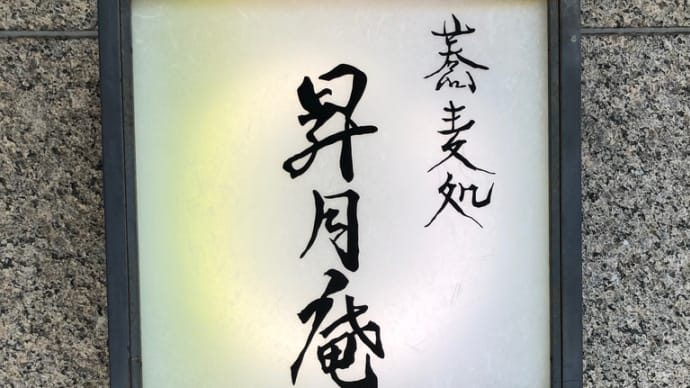 蕎麦処
昇月庵